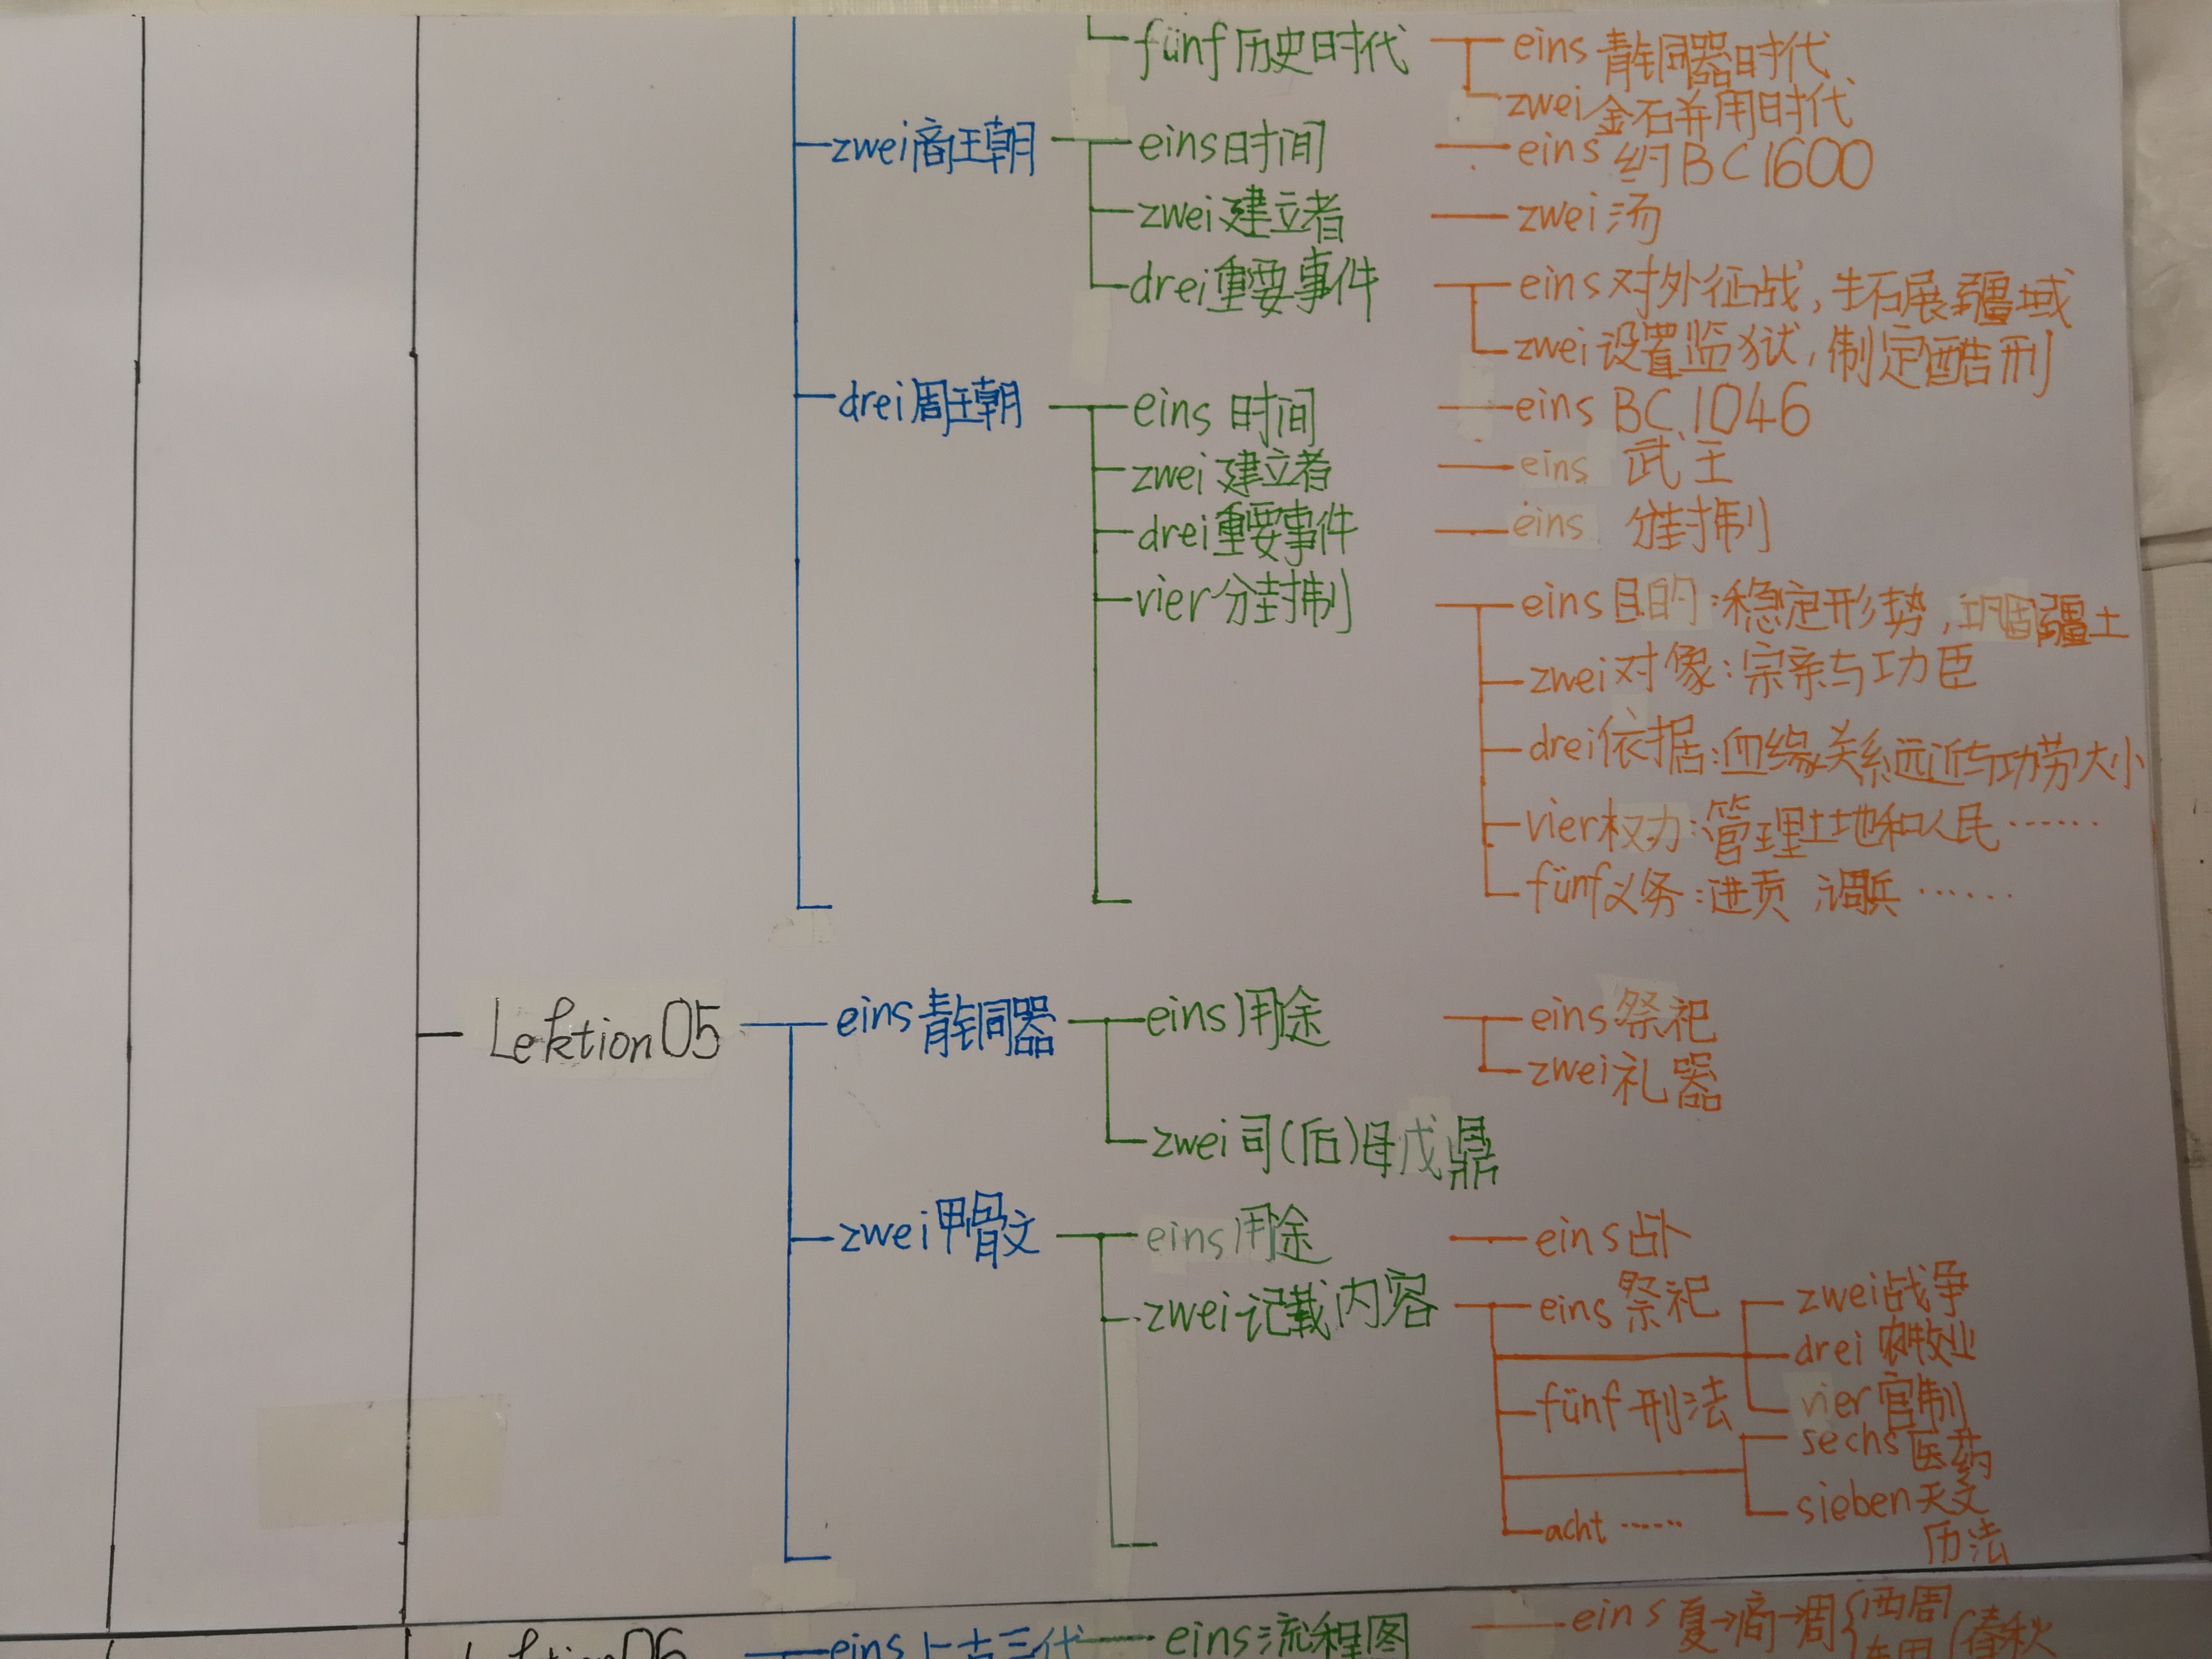 fünf历史时代
eins青铜器时代
zwei金石并用时代
zwei商王朝
eins时间
eins约BC1600
zwei建立者
zwei汤
drei重要事件
eins对外征战,拓展疆域
zwei设置监狱,制定酷刑
drei周王朝
eins时间
eins BC1046
zwei建立者
eins 武王
drei重要事件
eins 分封制
vier分封制
eins目的:稳定形势,巩固疆土
zwei对象:宗亲与功臣
drei依据:血缘关系远近与功劳大小
vier权力:管理土地和人民……
fünf义务:进贡 调兵……
Lektion05
eins青铜器
eins用途
eins祭祀
zwei礼器
zwei司(后)母戊鼎
zwei甲骨文
eins用途
eins占卜
zwei记载内容
eins祭祀
zwei战争
drei农牧业
vier官制
fünf刑法
sechs医药
sieben天文
历法
acht……
Lektion06
eins上古三代
eins流程图
eins夏→商→周{西周
东周{春秋